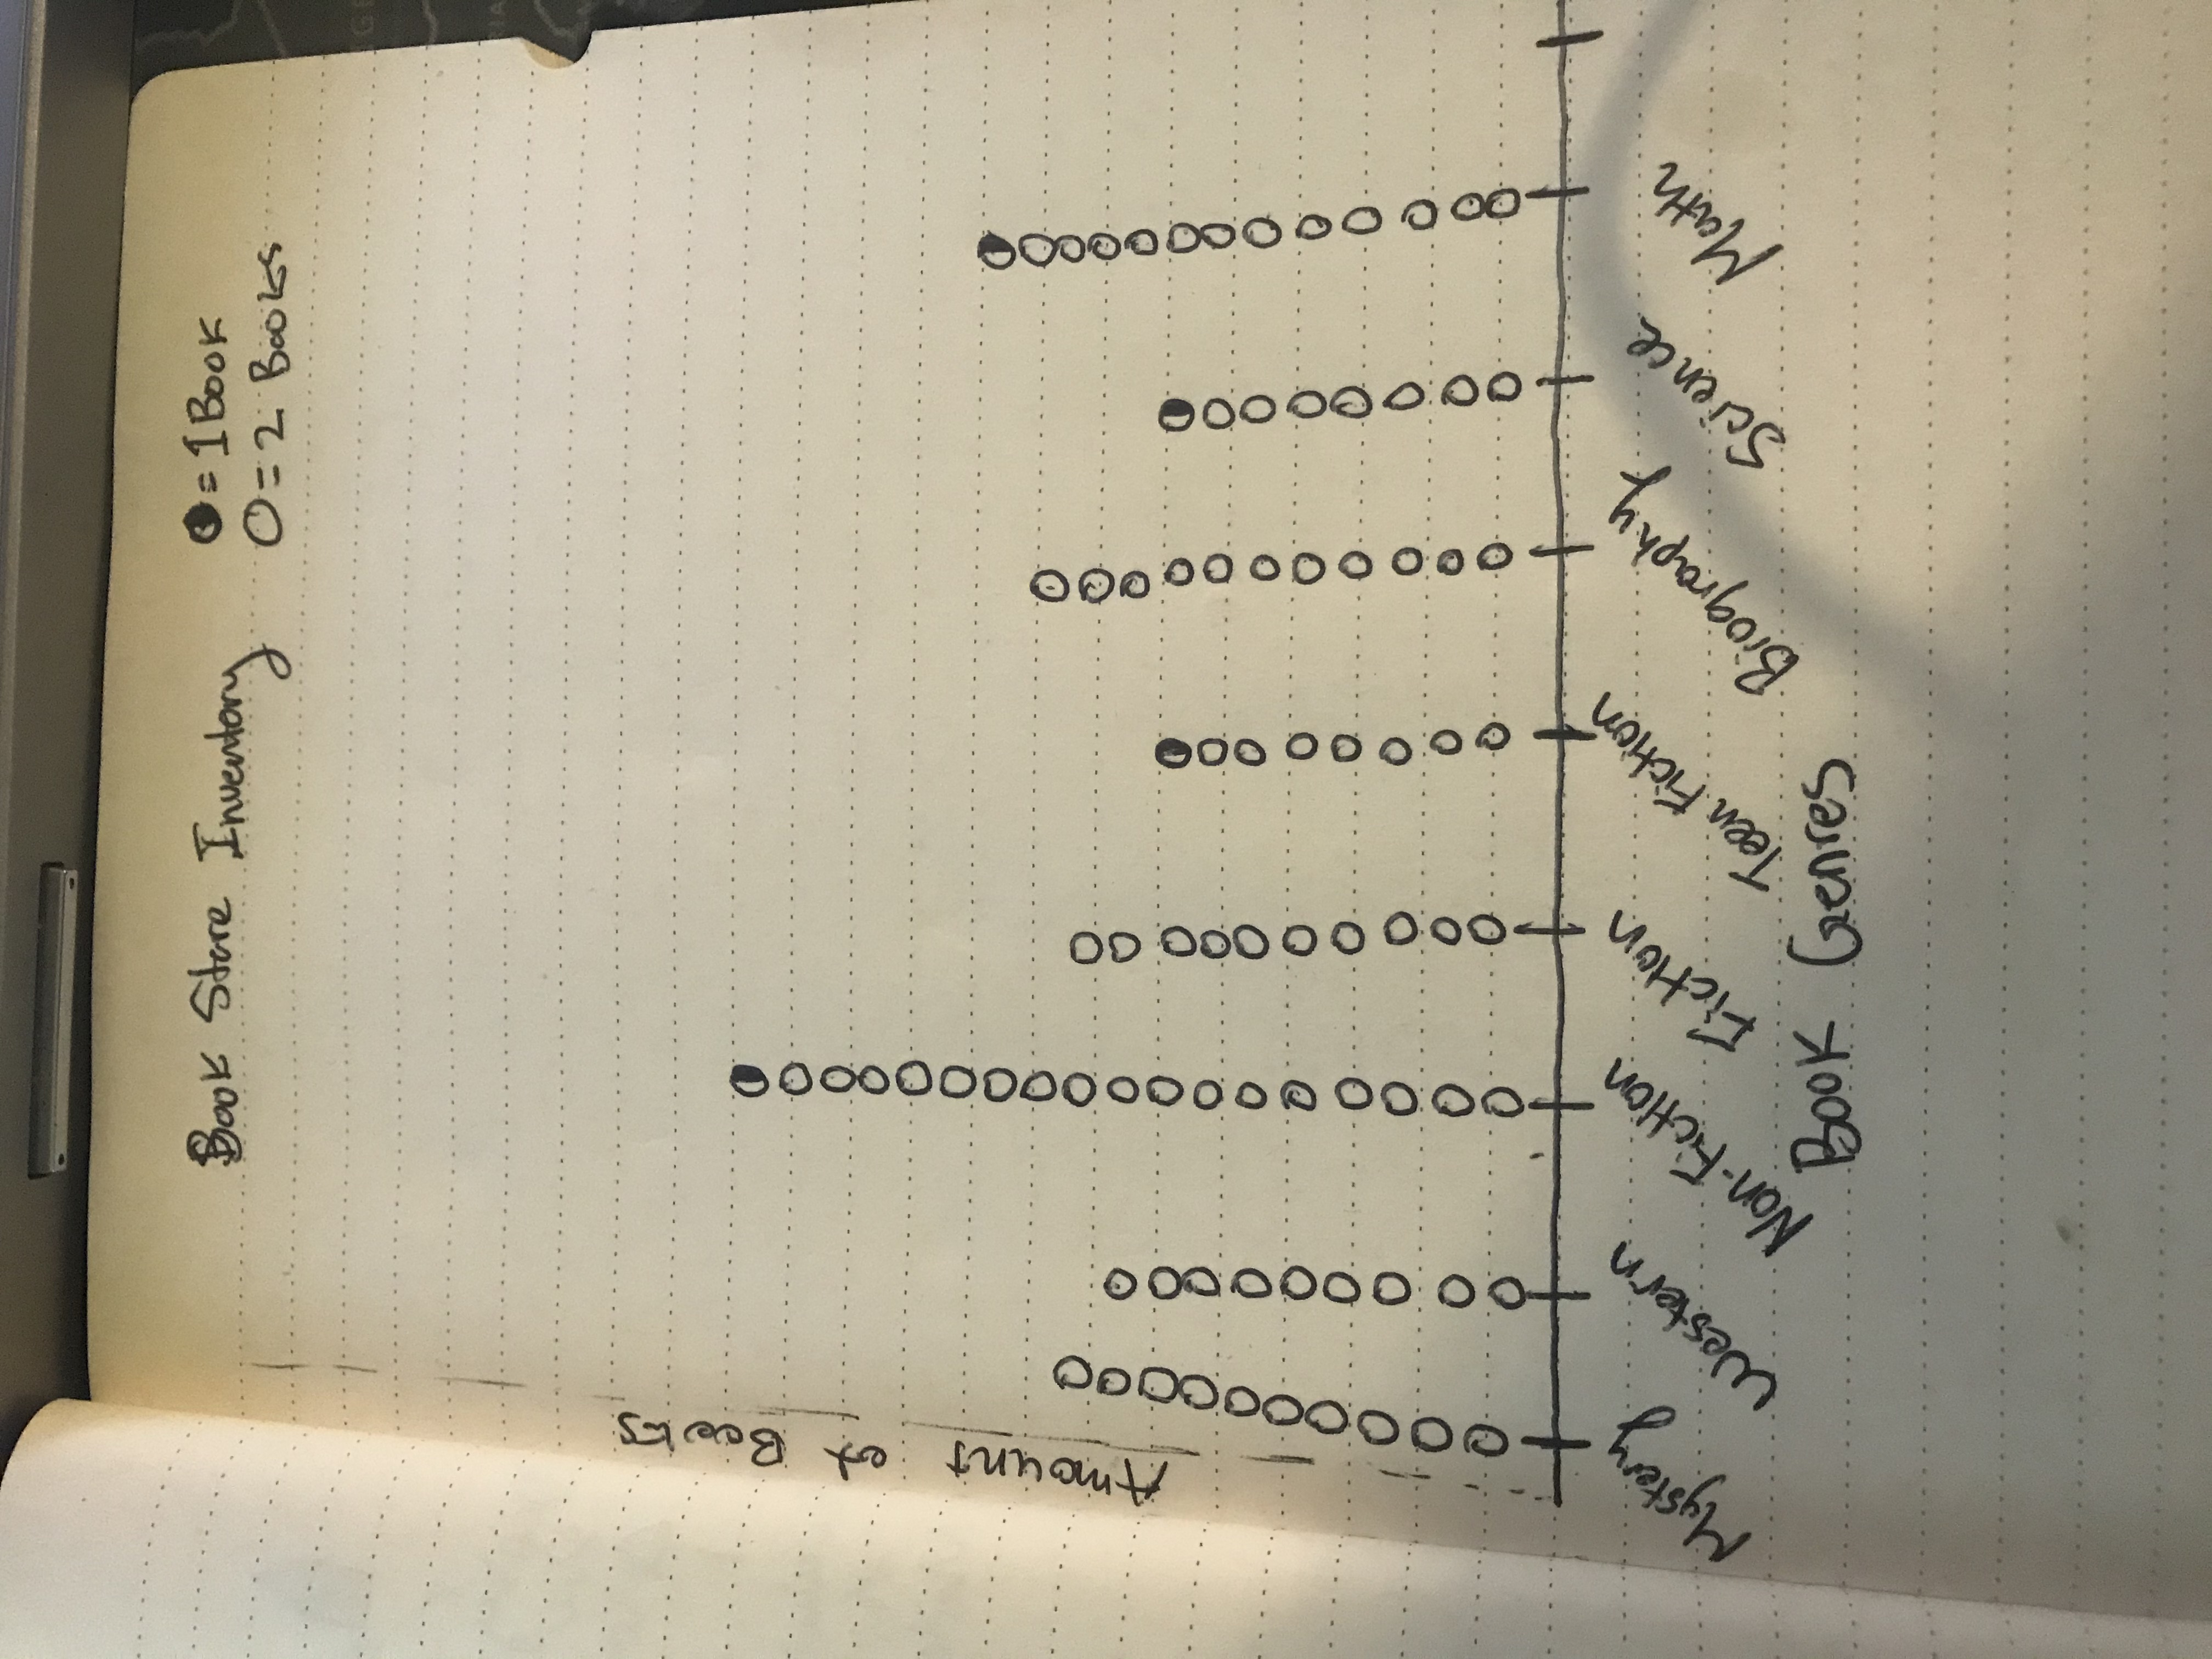 Book Store Inventory
◑ = 1 Book
○ = 2 Books
Amount of Books
Mystery
Western
Non-Fiction
Fiction
Teen Fiction
Biography
Science
Math
Book Genres